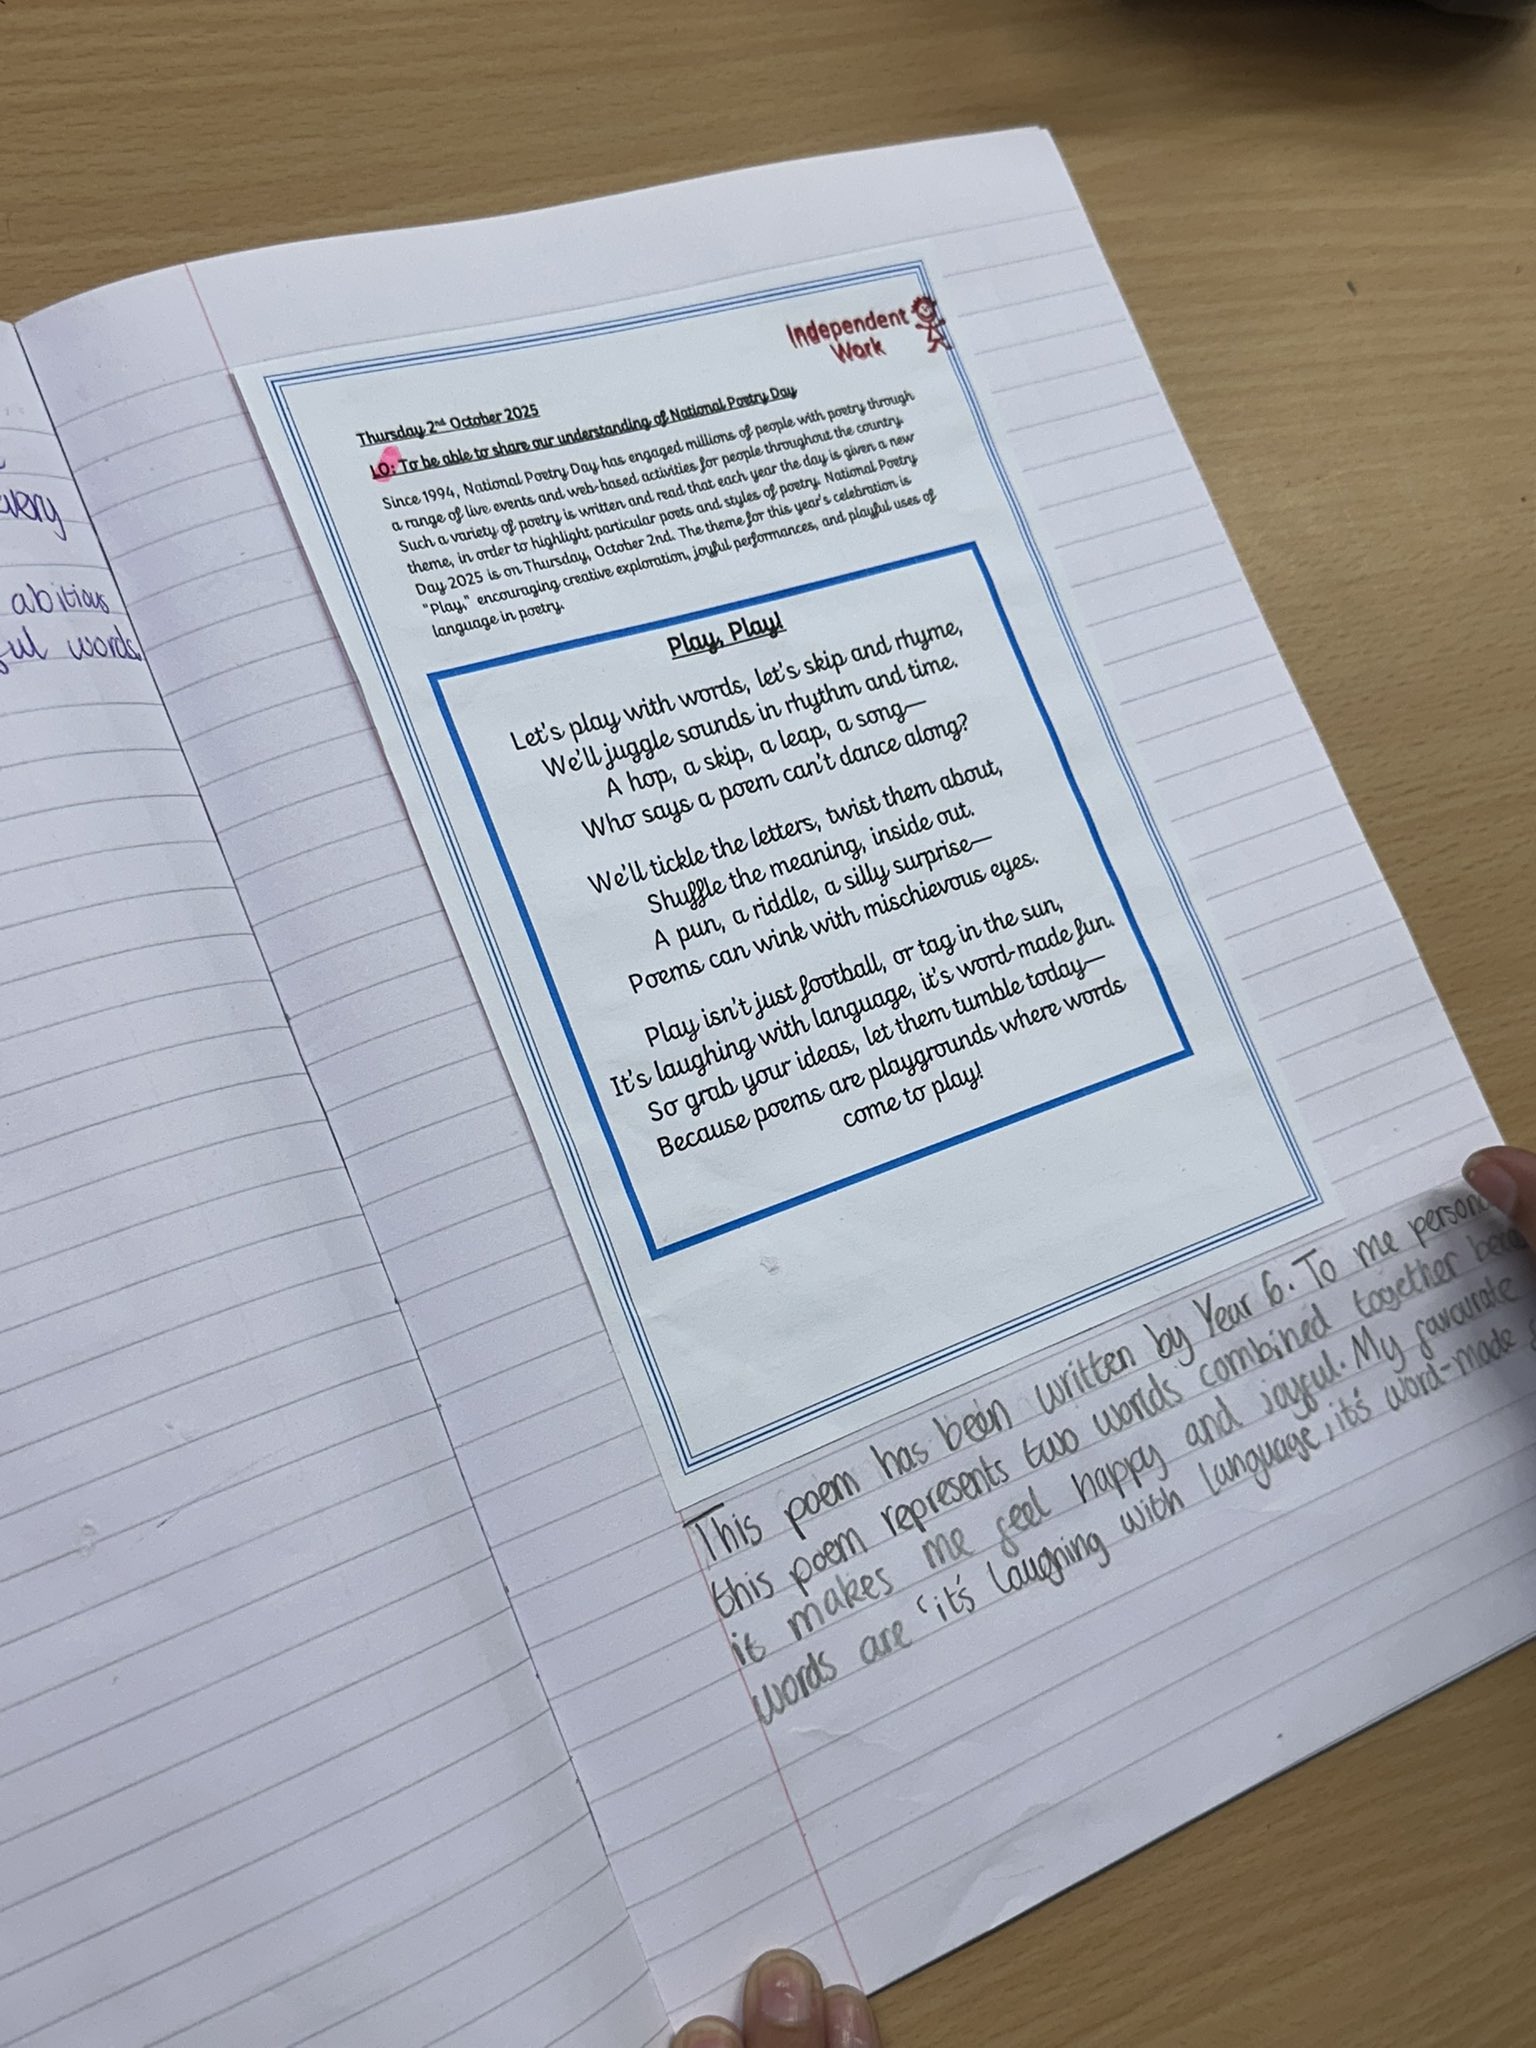 very
abitious
words.
Independent
Work
Thursday 2nd October 2025
LO: To be able to share our understanding of National Poetry Day
Since 1994, National Poetry Day has engaged millions of people with poetry through
a range of live events and web-based activities for people throughout the country.
Such a variety of poetry is written and read that each year the day is given a new
theme, in order to highlight particular poets and styles of poetry. National Poetry
Day 2025 is on Thursday, October 2nd. The theme for this year's celebration is
"Play," encouraging creative exploration, joyful performances, and playful uses of
language in poetry.
Play, Play!
Let's play with words, let's skip and rhyme,
We'll juggle sounds in rhythm and time.
A hop, a skip, a leap, a song—
Who says a poem can't dance along?
We'll tickle the letters, twist them about,
Shuffle the meaning, inside out.
A pun, a riddle, a silly surprise—
Poems can wink with mischievous eyes.
Play isn't just football, or tag in the sun,
It's laughing with language, it's word-made fun.
So grab your ideas, let them tumble today—
Because poems are playgrounds where words
come to play!
This poem has been written by Year 6. To me
this poem represents two worlds combined together
it makes me feel happy and joyful. My favourate
words are 'it's laughing with language, it's word-made